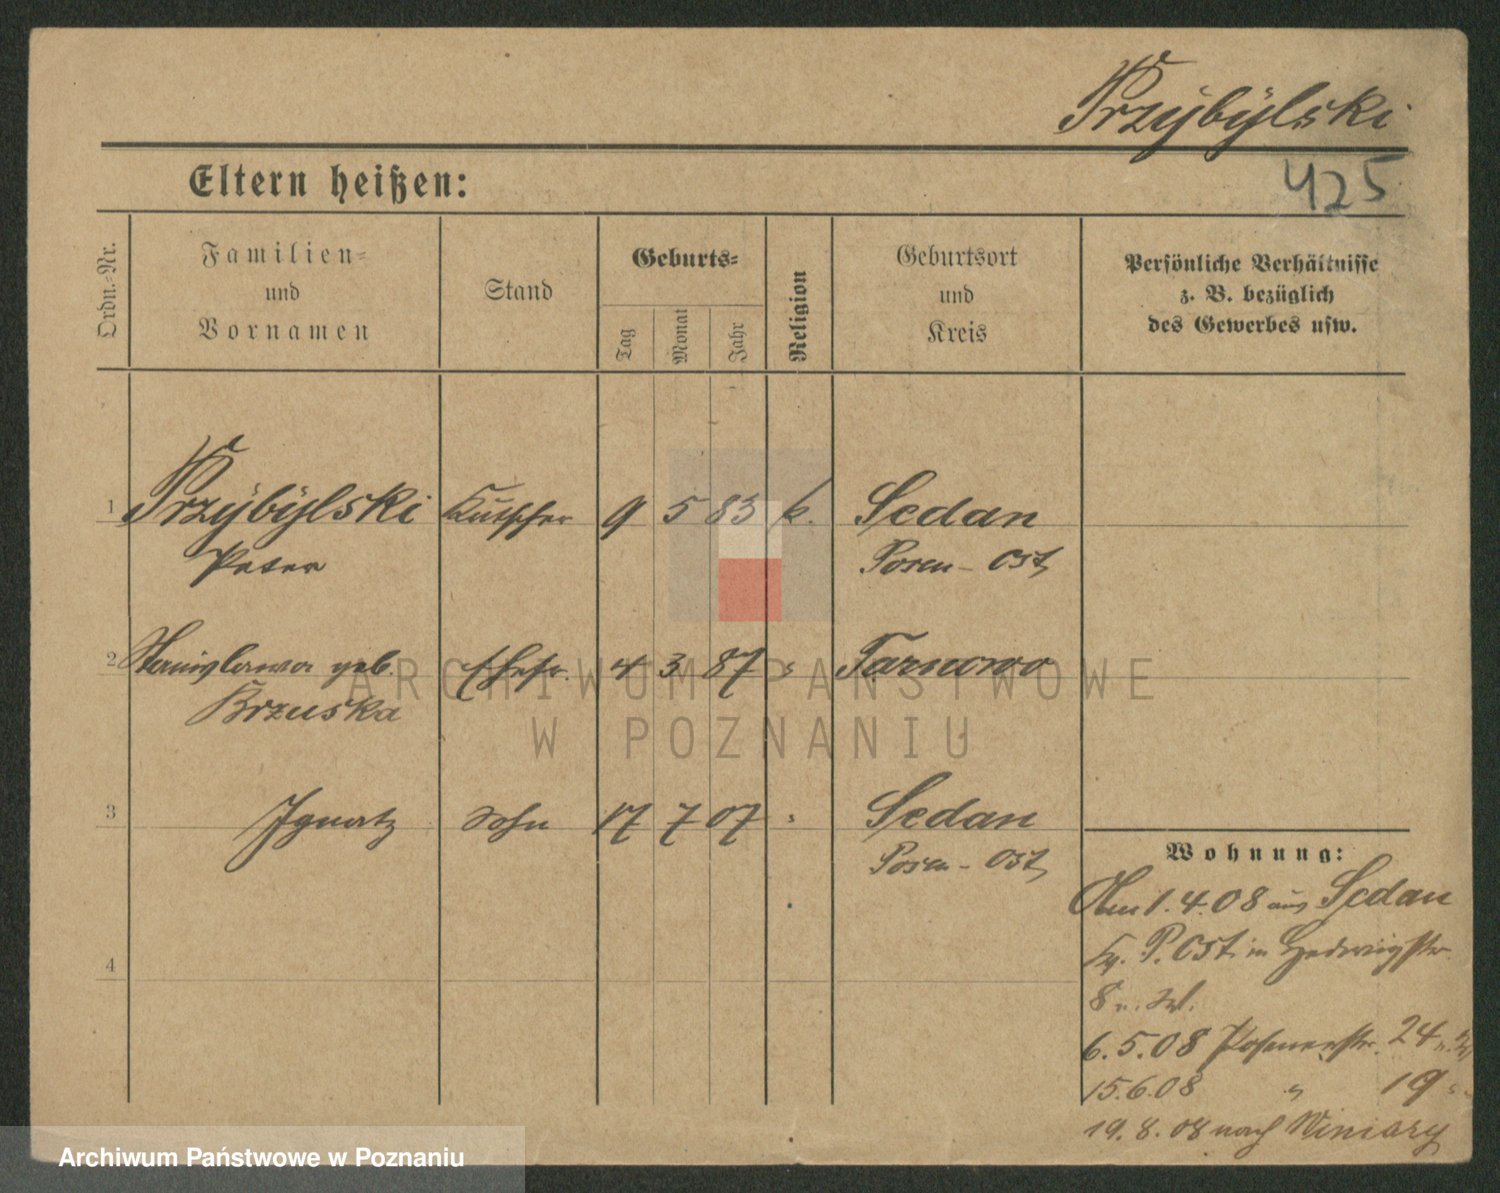 Przÿbÿlski
425
Eltern heißen:
Ordn.-Nr.
Familien- und Vornamen
Stand
Geburts-
Tag
Monat
Jahr
Religion
Geburtsort und Kreis
Persönliche Verhältnisse z. B. bezüglich des Gewerbes usw.
1 Przÿbÿlski Kutscher 9 5 83 k. Sedan
Peter Posen-Ost
2 Stanislawa geb. Ehefr. 4 3 87 " Tarnowo
Brzuska
3 Ignatz Sohn 17 7 07 " Sedan
Posen-Ost
4
Wohnung:
Am 1.4.08 aus Sedan
P. Ost in Hedwigstr.
8
6.5.08 Posenerstr. 24
15.6.08 " 19
19.8.08 nach Winiary
ARCHIWUM PAŃSTWOWE
W POZNANIU
Archiwum Państwowe w Poznaniu